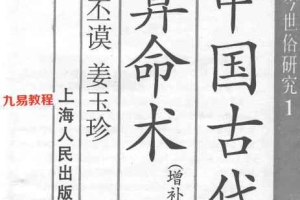 今世俗研究1
中国古代
算命术
(增补
丕谟 姜玉珍
上海人民出版
九易教程